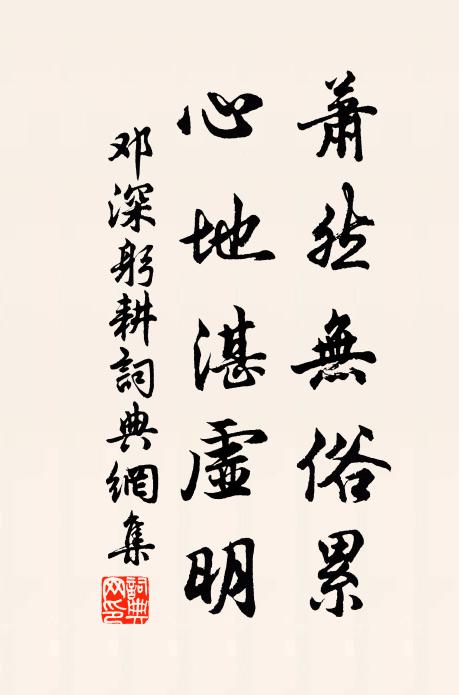 蕭然無俗累
心地湛虛明
邓深躬耕詞典網集
詞典网印